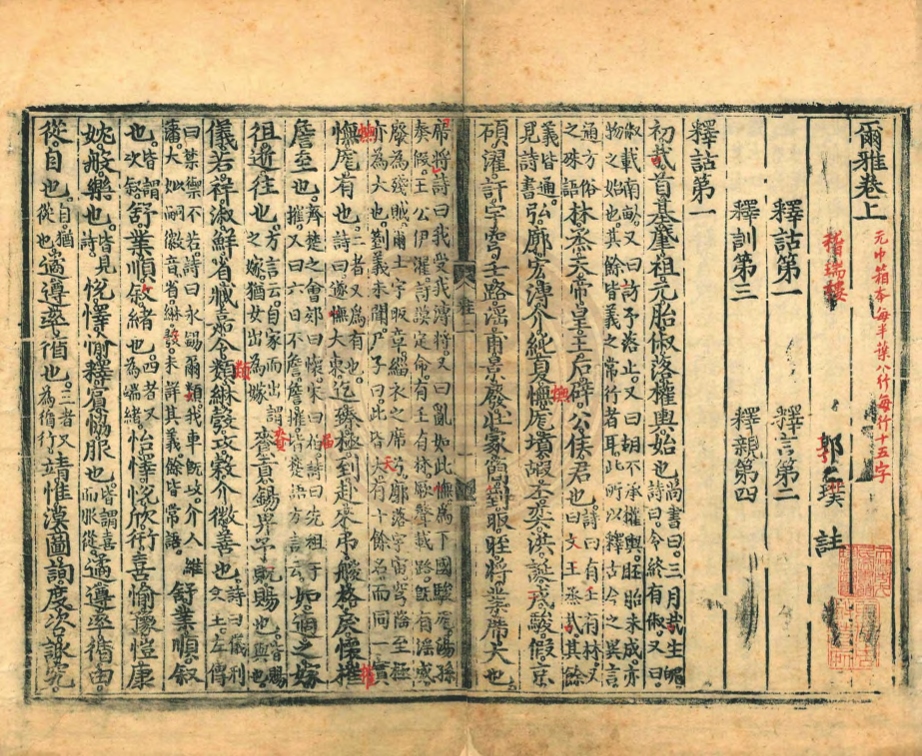 爾雅卷上
元巾箱本每半葉八行每行十五字
稽瑞樓
郭璞 註
釋詁第一 釋言第二
釋訓第三 釋親第四
釋詁第一
初哉首基肇祖元胎俶落權輿始也尚書曰三月哉生魄詩曰令終有俶又曰
俶載南畝又曰訪予落止又曰胡不承權輿胚胎未成亦
物之始也其餘皆義之常行者耳此所以釋古今之異言
通方俗之殊語林烝天帝皇王后辟公侯君也詩曰有壬有林又曰文王烝哉其餘
義皆通見詩書弘廓宏溥介純夏幠厖墳嘏丕奕洪誕戎駿假京
碩濯訏宇穹壬路淫甫景廢壯冢簡箌昄晊將業席大也
詩曰我受命溥將又曰亂如此幠為下國駿厖湯孫
奏假王公伊濯訏謨定命有壬有林厥聲載路既有淫威
廢為殘賊爾土宇昄章緇衣之席兮廓落宇宙穹隆至極
亦為大也箌義未聞尸子曰此皆大有十餘名而同一實
幠厖有也二者又為有也詩曰遂幠大東迄臻極到赴來弔艐格戾懷摧
詹至也齊楚之會郊曰懷宋曰屆詩曰先祖于摧又曰六日不詹詹摧皆楚語方言云如適之嫁
徂逝往也方言云自家而出謂之嫁猶女出為嫁賚貢錫畀予貺賜也皆賜與也
儀若祥淑鮮省臧嘉令類綝彀攻穀介徽善也詩曰儀刑文王左傳
曰禁禦不若詩曰永錫爾類我車既攻介人維
藩大姒嗣徽音省綝彀未詳其義餘皆常語舒業順敘
也皆謂次敘舒業順敘緒也四者又為端緒怡懌悅欣衎喜愉豫愷康
妉般樂也皆見詩悅懌愉釋賓協服也皆謂喜而服從遹遵率循由
從自也自猶從也遹遵率循也三者又為循行靖惟漠圖詢度咨諏究